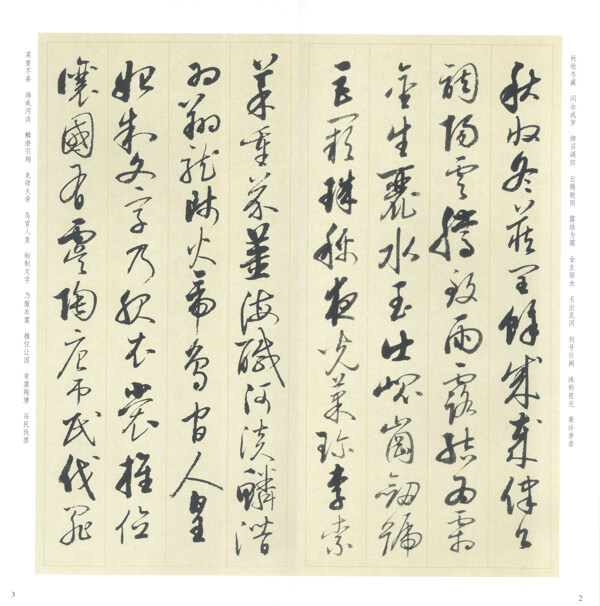 秋收冬藏 闰余成岁 律召调阳 云腾致雨 露结为霜 金生丽水 玉出昆冈 剑号巨阙 珠称夜光 果珍李柰
秋收冬藏閏餘成歲律召
調陽雲騰致雨露結為霜
金生麗水玉出崐崗劍號
巨闕珠稱夜光菓珍李柰
菜重芥薑海醎河淡鱗潛
羽翔龍師火帝鳥官人皇
始制文字乃服衣裳推位
讓國有虞陶唐吊民伐罪
菜重芥姜 海咸河淡 鳞潜羽翔 龙师火帝 鸟官人皇 始制文字 乃服衣裳 推位让国 有虞陶唐 吊民伐罪
3
2